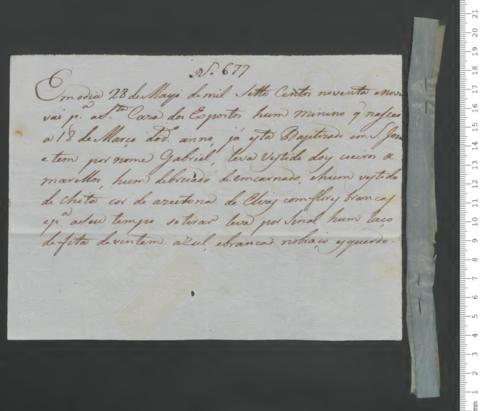 N. 677
Em o dia 28 de Mayo de mil Sette Centos noventa e nove
vai p.ª a S.ta Caza dos Expostos hum minino q nasceo
a 18 de Março do d.º anno, já esta Baptizado em S. Joze
e tem por nome Gabriel, leva vestido dois cueiros a
marellos, hum debruado de emcarnado, e hum vestido
de chita cor de azeitona de Elvas com flores brancas
e p.ª a seu tempo se tirar leva por Sinal hum laço
de fita de vintem azul, e branca no braço esquerdo.